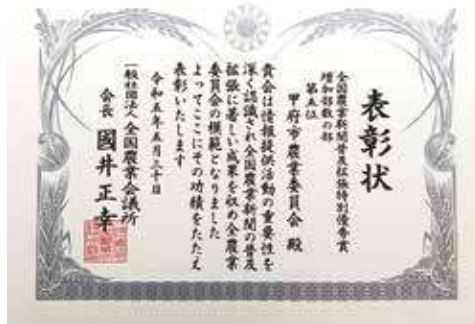 表彰状
全国農業新聞普及拡張特別優秀賞
増加部数の部
第五位
甲府市農業委員会 殿
貴会は情報提供活動の重要性を
深く認識され全国農業新聞の普及
拡張に著しい成果を収め全農業
委員会の模範となりました
よってここにその功績をたたえ
表彰いたします
令和五年五月三十日
一般社団法人 全国農業会議所
会長 國井正幸